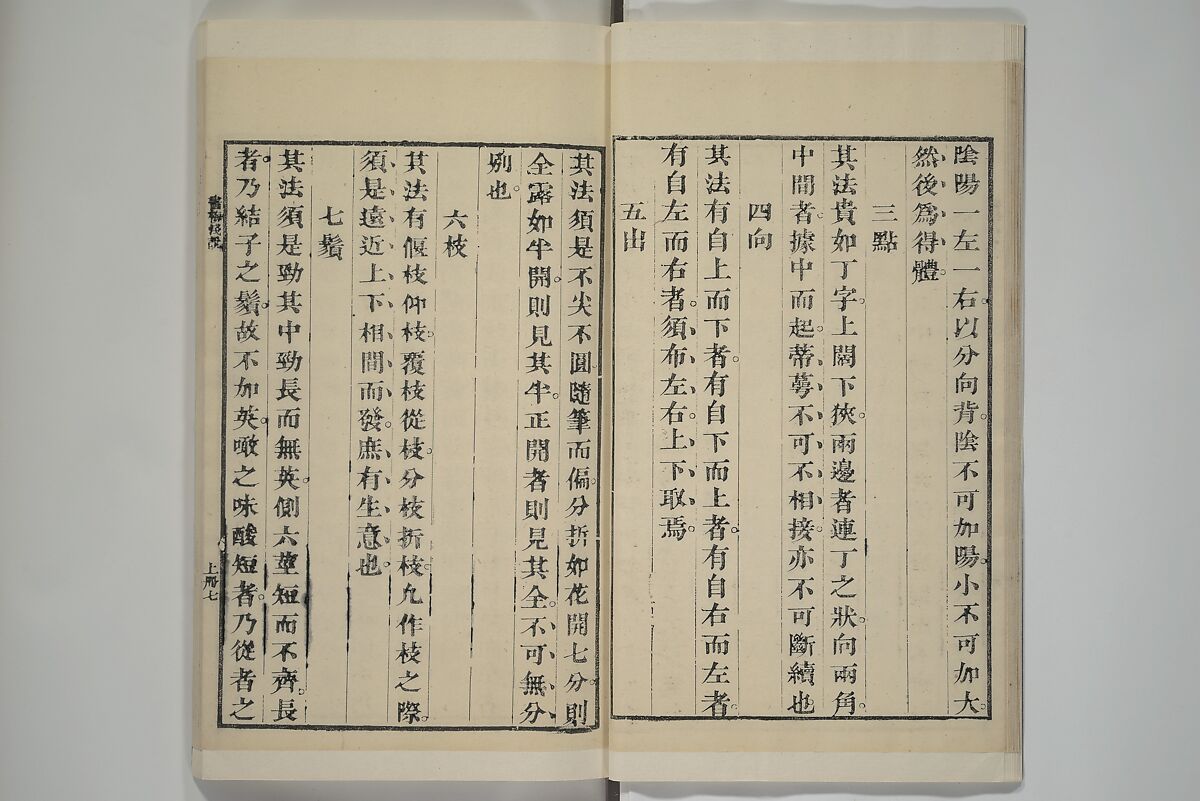 陰陽一左一右。以分向背。陰不可加陽。小不可加大。
然後爲得體。
三點
其法貴如丁字。上闊下狹。兩邊者連丁之狀。向兩角。
中間者。據中而起。蒂萼不可不相接。亦不可斷續也
四向
其法有自上而下者。有自下而上者。有自右而左者。
有自左而右者。須布左右。上下取焉。
五出
其法須是不尖不圓。隨筆而偏。分折如花開七分。則
全露如半開。則見其半。正開者則見其全。不可無分
別也。
六枝
其法有偃枝仰枝。覆枝從枝。分枝折枝。凡作枝之際。
須是遠近上下相間而發。庶有生意也。
七鬚
其法須是勁其中勁長而無英。側六莖短而不齊。長
者。乃結子之鬚。故不加英。噉之味酸。短者。乃從者之
上册七